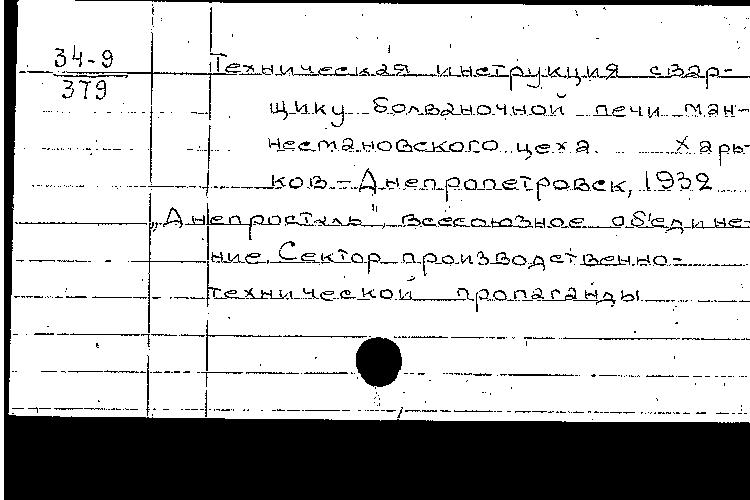 34-9
379
Техническая инструкция свар-
щику болваночной печи ман-
несмановского цеха. Харь-
ков-Днепропетровск, 1932
„Днепросталь", всесоюзное об'едине-
ние. Сектор производственно-
технической пропаганды